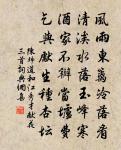 風雨東籬冷落看
清溪水落玉峰寒
酒家不辦當壚費
乞與獻生種杏壇
陳師道和江秀才獻花
三首詞典網集